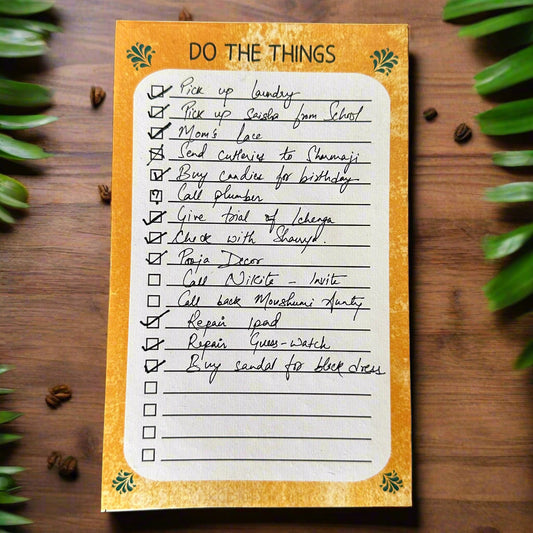 DO THE THINGS
Pick up laundry
Pick up saisha from School
Mom's lace
Send cutleries to Sharmaji
Buy candies for birthday
? Call plumber
Give trial of lehenga
Check with Shaurya.
Pooja Decor
Call Nikita - Invite
Call back Moushumi Aunty
Repair ipad
Repair Guess-watch
Buy sandal for black dress